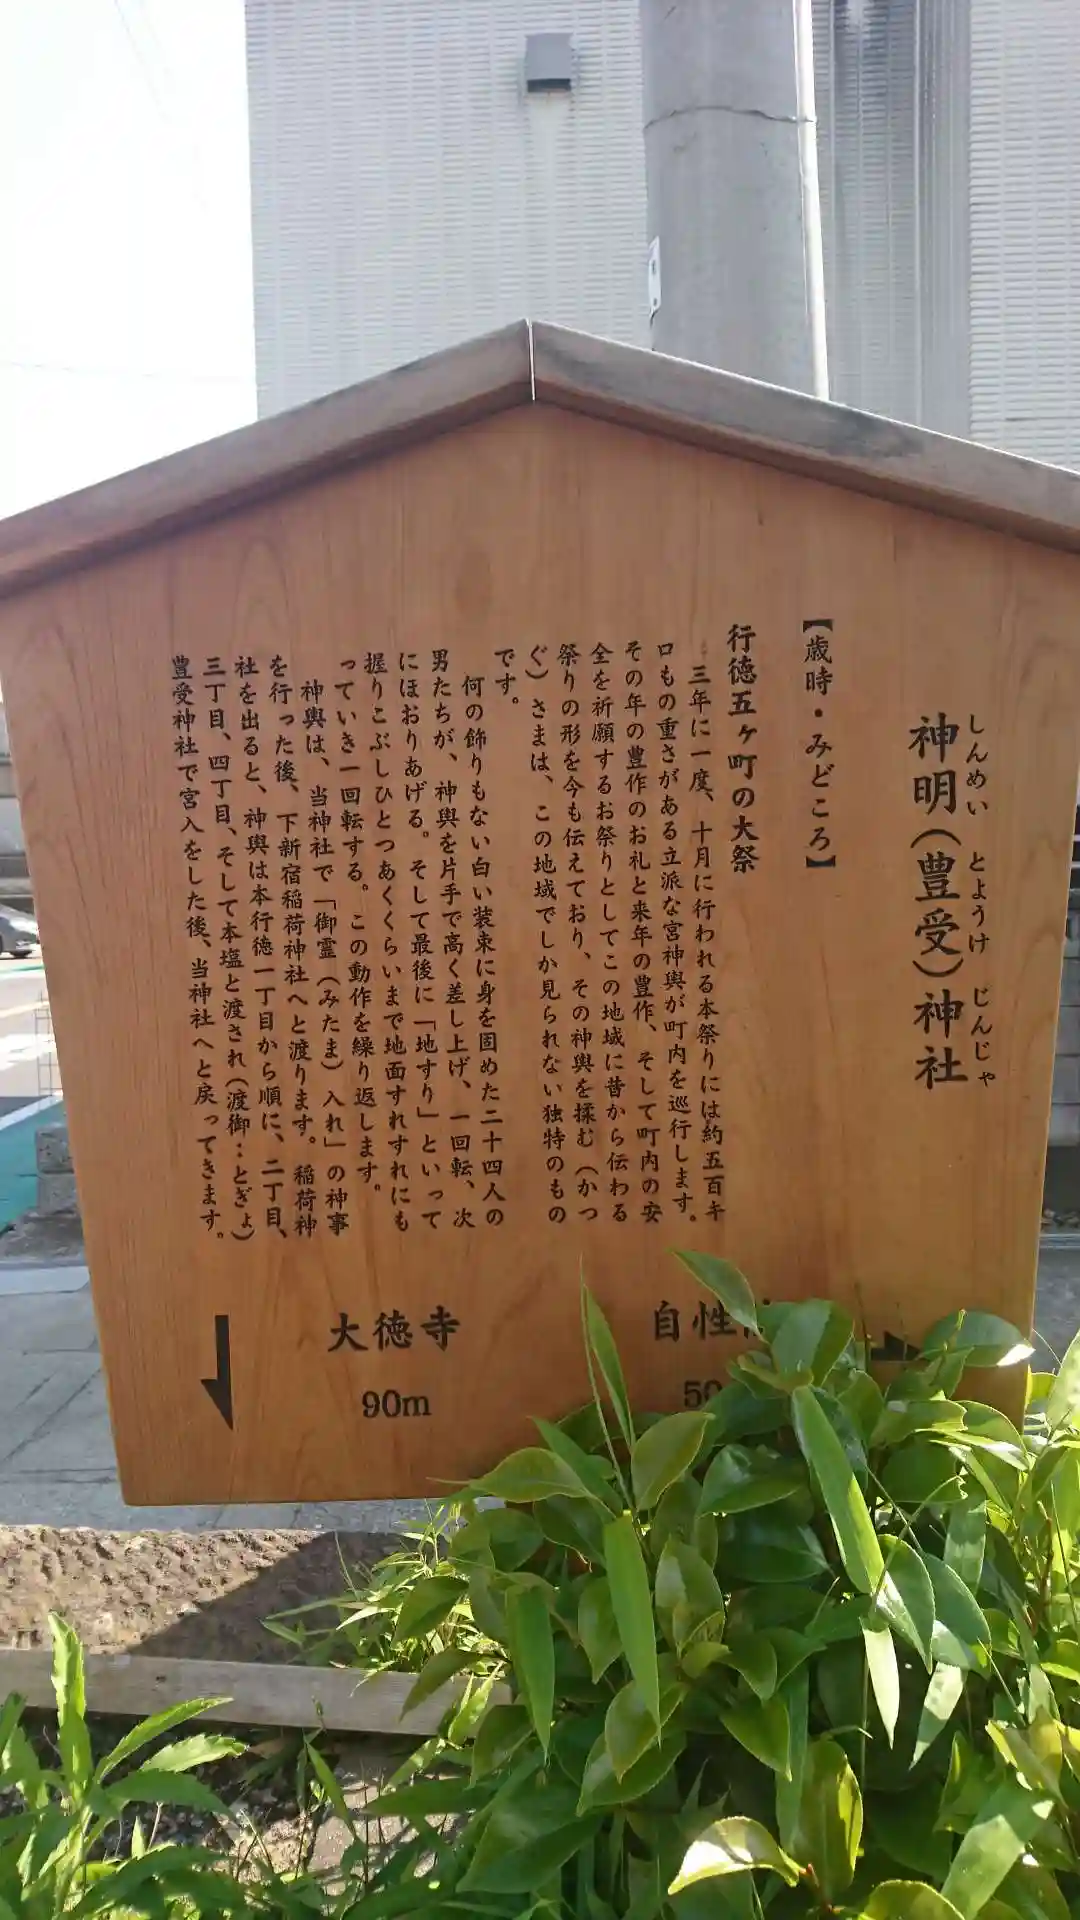 しんめい とようけ じんじゃ
神明(豊受)神社
【歳時・みどころ】
行徳五ヶ町の大祭
三年に一度、十月に行われる本祭りには約五百キ
ロもの重さがある立派な宮神輿が町内を巡行します。
その年の豊作のお礼と来年の豊作、そして町内の安
全を祈願するお祭りとしてこの地域に昔から伝わる
祭りの形を今も伝えており、その神輿を揉む(かつ
ぐ)さまは、この地域でしか見られない独特のもの
です。
何の飾りもない白い装束に身を固めた二十四人の
男たちが、神輿を片手で高く差し上げ、一回転、次
にほおりあげる。そして最後に「地すり」といって
握りこぶしひとつあくくらいまで地面すれすれにも
っていき一回転する。この動作を繰り返します。
神輿は、当神社で「御霊(みたま)入れ」の神事
を行った後、下新宿稲荷神社へと渡ります。稲荷神
社を出ると、神輿は本行徳一丁目から順に、二丁目、
三丁目、四丁目、そして本塩と渡され(渡御:とぎょ)
豊受神社で宮入をした後、当神社へと戻ってきます。
大徳寺
90m
自性
50